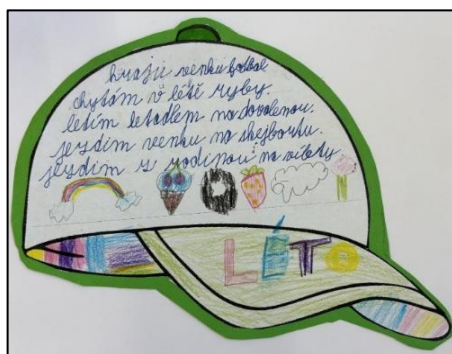 hraju venku fotbal
chytám v létě ryby.
letím letadlem na dovolenou.
jezdím venku na skejbortu.
jezdím s rodinou na výlety
LÉTO